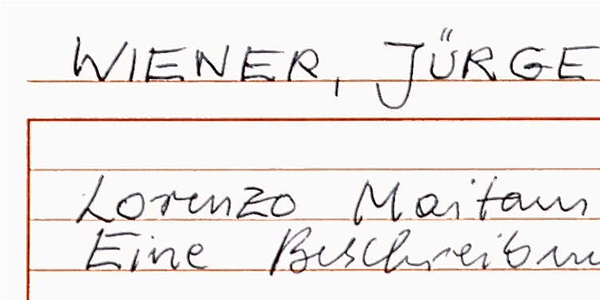 WIENER, JÜRGE
Lorenzo Maitani
Eine Beschreibun